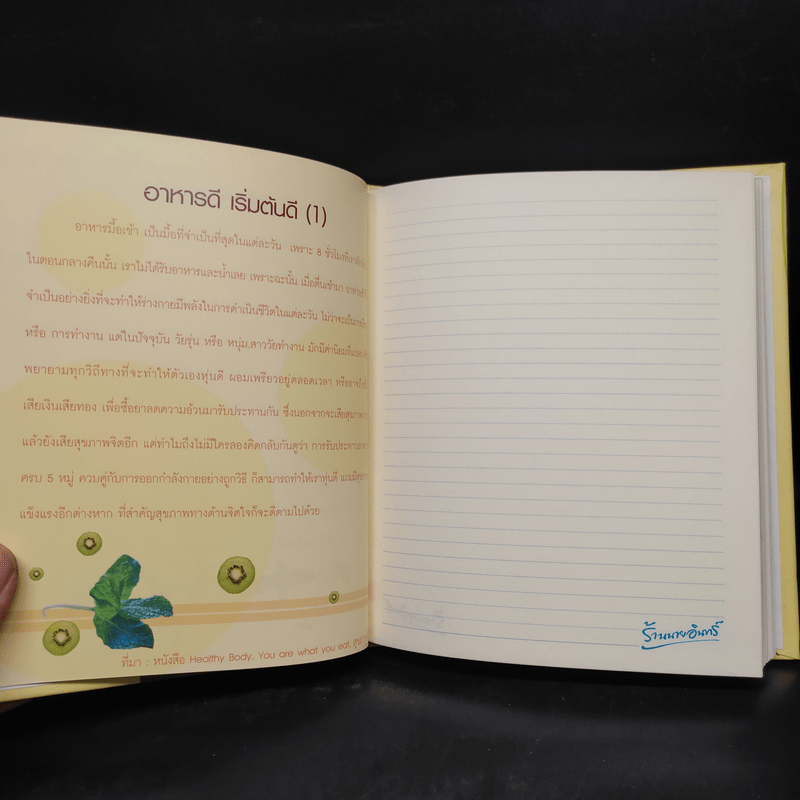 อาหารดี เริ่มต้นดี (1)
อาหารมื้อเช้า เป็นมื้อที่จำเป็นที่สุดในแต่ละวัน เพราะ 8 ชั่วโมงที่เรา
ในตอนกลางคืนนั้น เราไม่ได้รับอาหารและน้ำเลย เพราะฉะนั้น เมื่อตื่นเช้ามา
จำเป็นอย่างยิ่งที่จะทำให้ร่างกายมีพลังในการดำเนินชีวิตในแต่ละวัน ไม่ว่าจะเป็น
หรือ การทำงาน แต่ในปัจจุบัน วัยรุ่น หรือ หนุ่ม.สาววัยทำงาน มักมีค่านิยมที่
พยายามทุกวิถีทางที่จะทำให้ตัวเองหุ่นดี ผอมเพรียวอยู่ตลอดเวลา หรืออาจ
เสียเงินเสียทอง เพื่อซื้อยาลดความอ้วนมารับประทานกัน ซึ่งนอกจากจะเสียสุขภาพ
แล้วยังเสียสุขภาพจิตอีก แต่ทำไมถึงไม่มีใครลองคิดกลับกันดูว่า การรับประทาน
ครบ 5 หมู่ ควบคู่กับการออกกำลังกายอย่างถูกวิธี ก็สามารถทำให้เราหุ่นดี แถมมี
แข็งแรงอีกต่างหาก ที่สำคัญสุขภาพทางด้านจิตใจก็จะดีตามไปด้วย
ที่มา : หนังสือ Healthy Body, You are what you eat,
ร้านนายอินทร์